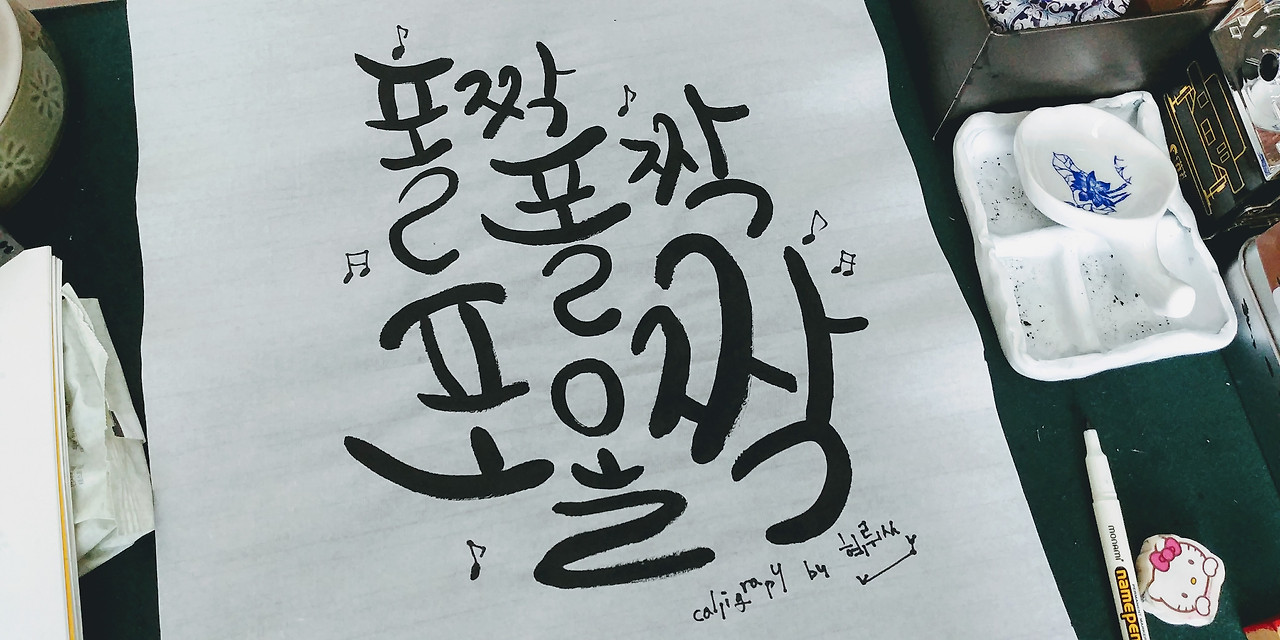 폴짝
폴짝
포올짝
calligrapy by
monami namepen